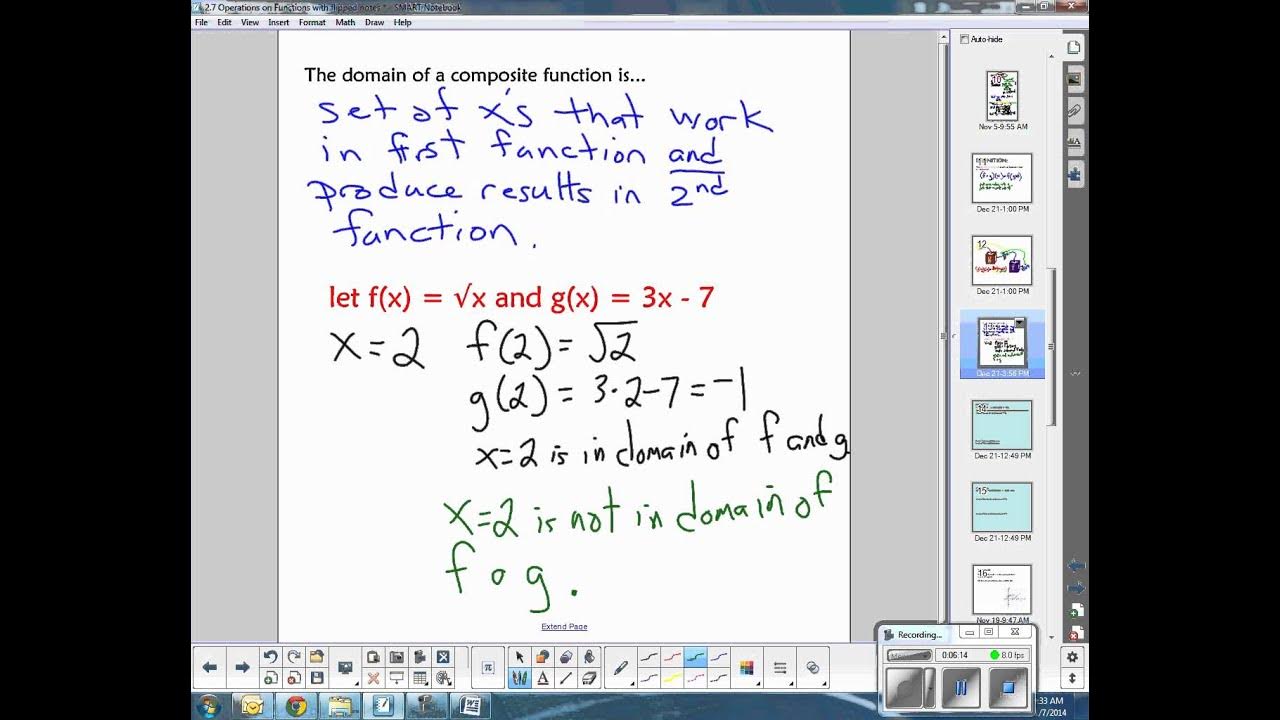 2.7 Operations on Functions with flipped notes * - SMART Notebook
File Edit View Insert Format Math Draw Help
The domain of a composite function is...
set of x's that work
in first function and
produce results in 2nd
function.
let f(x) = √x and g(x) = 3x - 7
x=2 f(2) = √2
g(2) = 3·2-7 = -1
x=2 is in domain of f and g
x=2 is not in domain of
f o g.
Extend Page
Auto-hide
Nov 5-9:55 AM
Dec 21-1:00 PM
12
Dec 21-1:00 PM
Dec 21-3:56 PM
Dec 21-12:49 PM
15
Dec 21-12:49 PM
16
Nov 19-9:47 AM
Recording...
0:06:14
8.0 fps
:33 AM
/7/2014